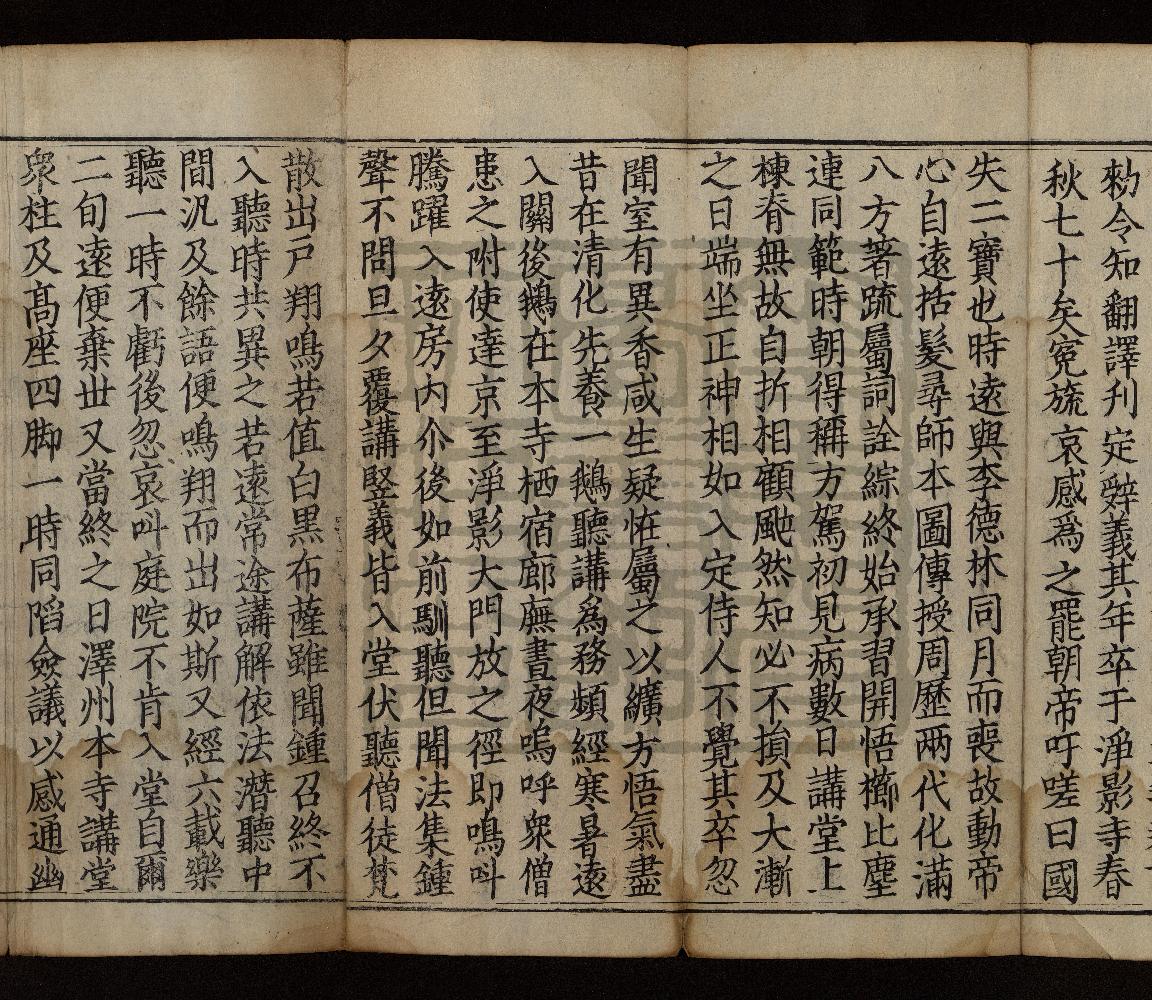 勑令知翻譯刋定辭義其年卒于淨影寺春
秋七十矣冕旒哀感爲之罷朝帝吁嗟曰國
失二寶也時遠與李德林同月而喪故動帝
心自遠括髮尋師本圖傳授周歷兩代化滿
八方著疏屬詞詮綜終始承習開悟櫛比塵
連同範時朝得稱方駕初見病數日講堂上
棟脊無故自折相顧颭然知必不損及大漸
之日端坐正神相如入定侍人不覺其卒忽
聞室有異香咸生疑恠屬之以纊方悟氣盡
昔在清化先養一鵝聽講爲務頻經寒暑遠
入關後鵝在本寺栖宿廊廡晝夜嗚呼衆僧
患之附使達京至淨影大門放之徑即鳴叫
騰躍入遠房內尒後如前馴聽但聞法集鍾
聲不問旦夕覆講竪義皆入堂伏聽僧徒梵
散出戶翔鳴若值白黑布薩雖聞鍾召終不
入聽時共異之若遠常途講解依法潛聽中
間汎及餘語便鳴翔而出如斯又經六載樂
聽一時不虧後忽哀叫庭院不肯入堂自爾
二旬遠便棄丗又當終之日澤州本寺講堂
衆柱及髙座四脚一時同陷僉議以感通幽